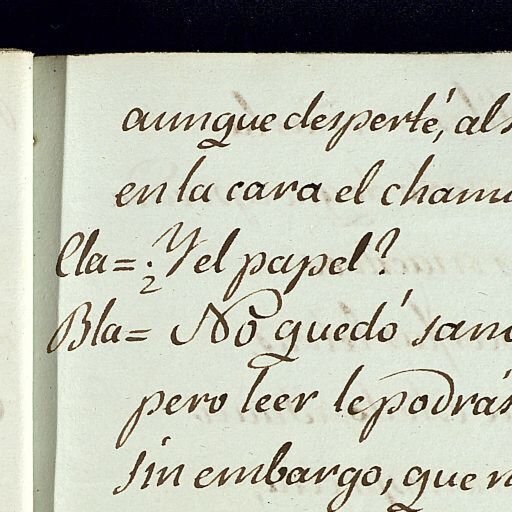 aunque desperté, al
en la cara el cham
Cla= ¿Y el papel?
Bla= No quedó san
pero leer le podrás
sin embargo, que